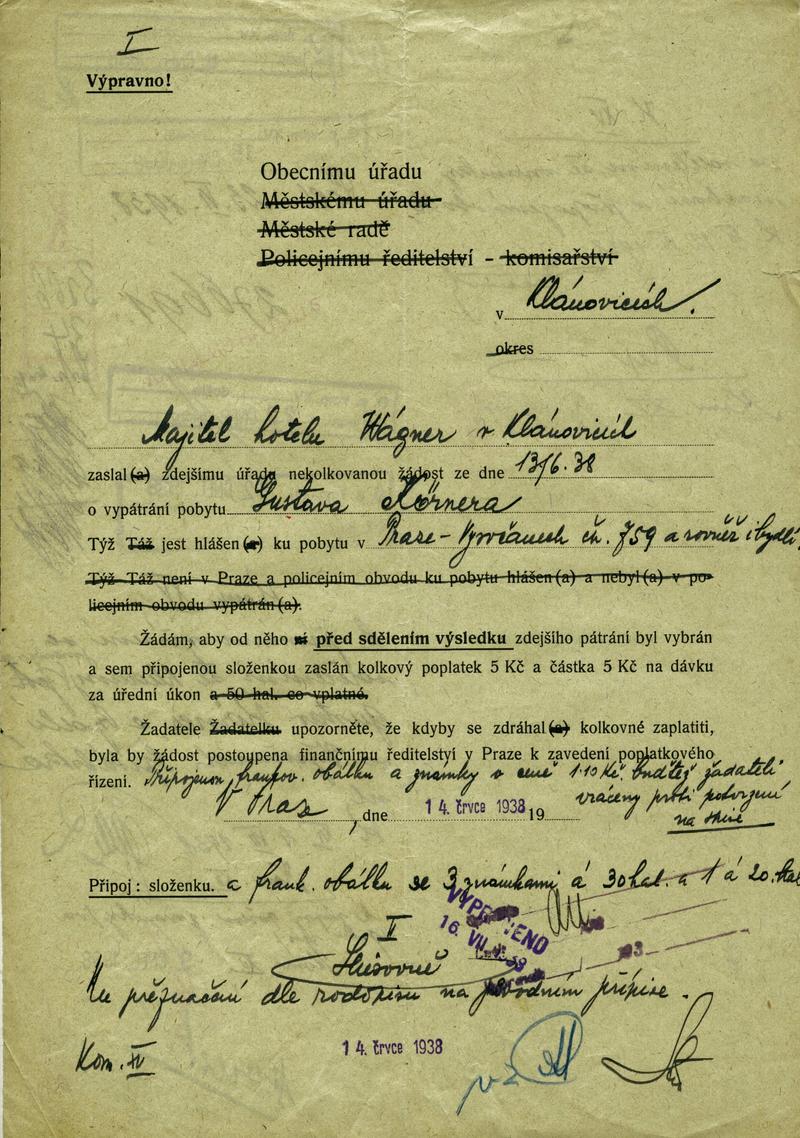 I
Výpravno!
Obecnímu úřadu
Městskému úřadu
Městské radě
Policejnímu ředitelství - komisařství
v Klánovicích.
okres
Majitel hotelu Wágner v Klánovicích
zaslal(a) zdejšímu úřadu nekolkovanou žádost ze dne 13/6. 38
o vypátrání pobytu Gustava Körnera
Týž Táž jest hlášen(a) ku pobytu v Praze - Vysočanech čp. 759 a rovněž i bydlí.
Týž Táž není v Praze a policejním obvodu ku pobytu hlášen(a) a nebyl(a) v po-
licejním obvodu vypátrán(a).
Žádám, aby od něho ní před sdělením výsledku zdejšího pátrání byl vybrán
a sem připojenou složenkou zaslán kolkový poplatek 5 Kč a částka 5 Kč na dávku
za úřední úkon a 50 hal. co vplatné.
Žadatele Žadatelku upozorněte, že kdyby se zdráhal(a) kolkovné zaplatiti,
byla by žádost postoupena finančnímu ředitelství v Praze k zavedení poplatkového
řízení. Připojenou frankov. obálku a známky v ceně 1·10 Kč žadateli
vráceny proti potvrzení
V Praze, dne 14. črvce 1938 19
Připoj: složenku. a frank. obálku se 3 známkami á 30 hal. a 1 á 20. hal
VYPRAVENO
16. VII.
I
dle na původním přípise.
14. črvce 1938
Kom. IV